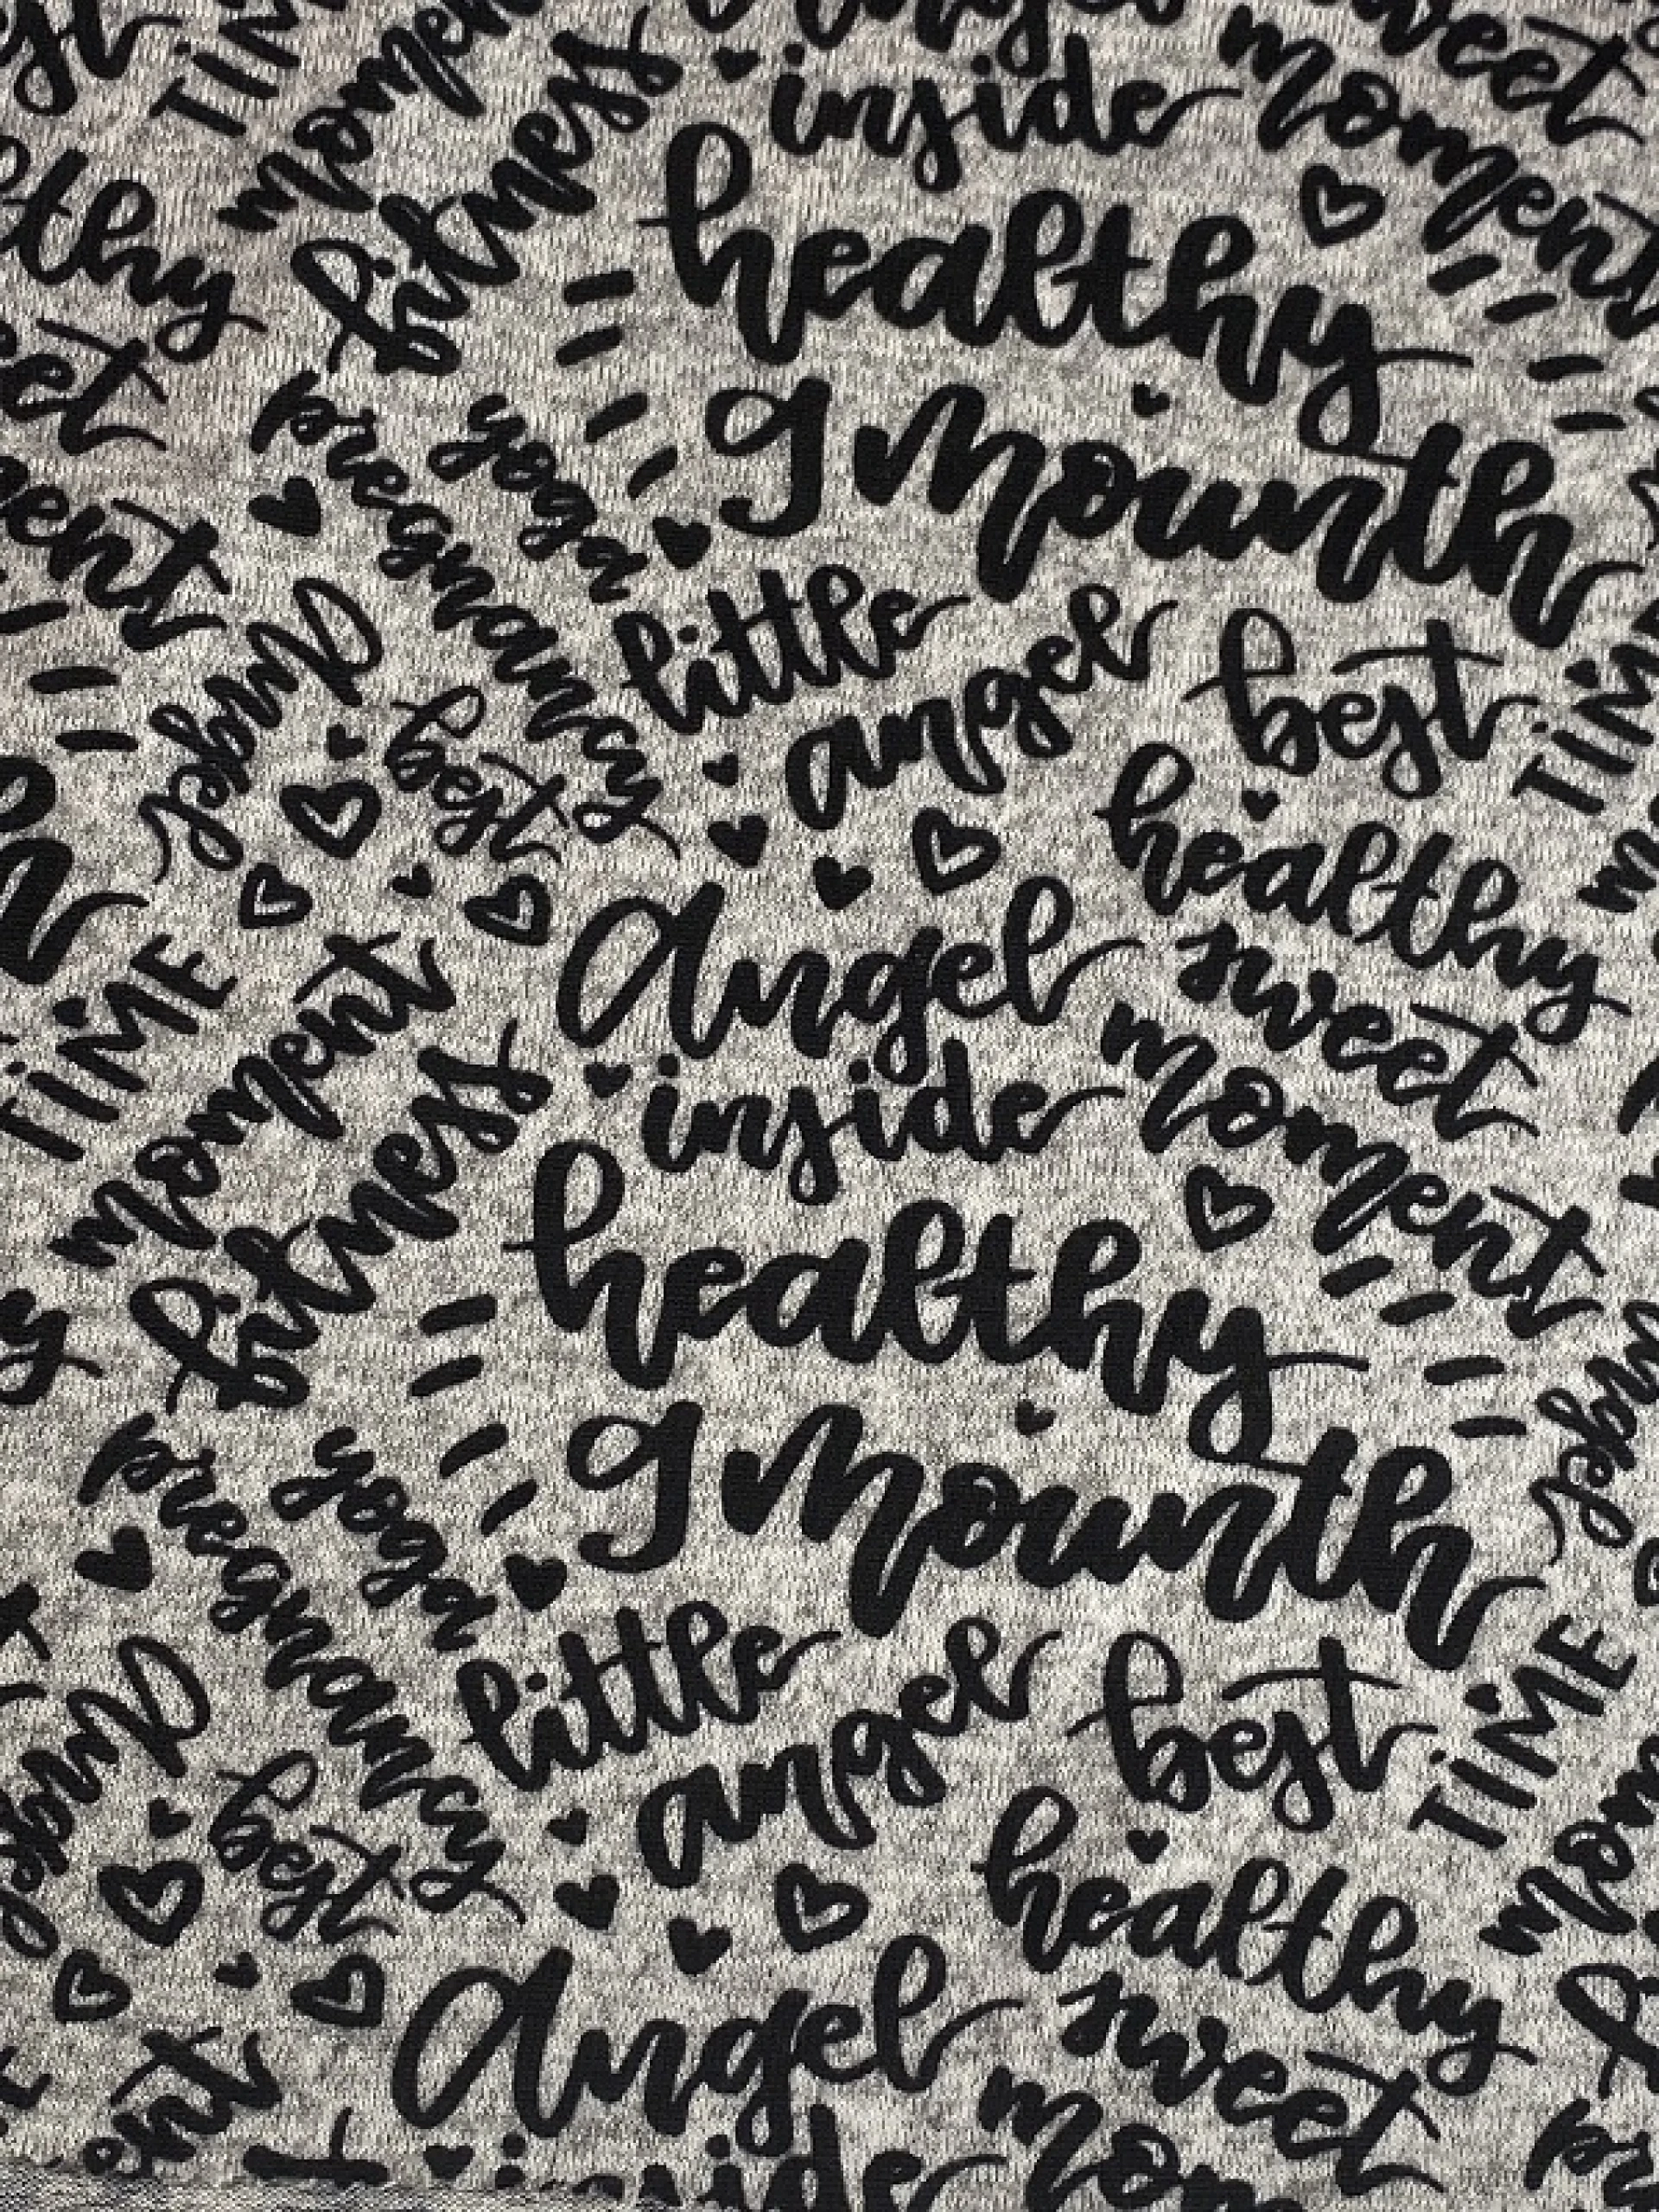 sweet
TIM
moment
inside
moment
fitness
healthy
thy
et
pregnancy
yoga
9 mounth
ent
little
angel
best
TIM
Angel
best
healthy
Angel
sweet
TIME
moment
inside
moment
fitness
healthy
pregnancy
yoga
9 mounth
Angel
little
angel
best
TIME
Angel
best
healthy
Angel
sweet
ent
inside
mom